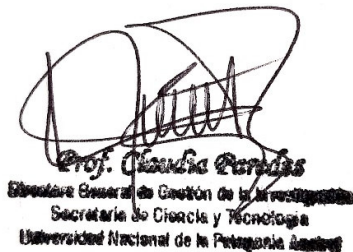 Prof. Claudia Paredes
Directora General de Gestión de la Investigación
Secretaría de Ciencia y Tecnología
Universidad Nacional de la Patagonia Austral